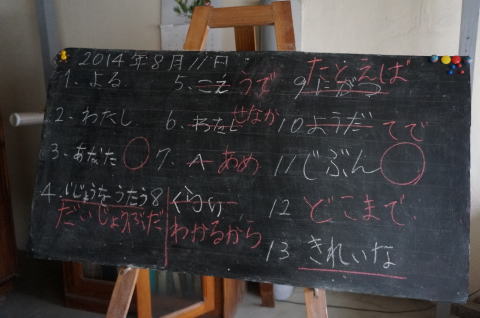 2014年8月11日
1、よる
2、わたし
3、あなた
4、じじょうをうたう
だいじょうぶだ
5、こえ うで
6、わたし せなか
7、A あめ
8、くらい
わかるから
9、たとえば
10、ようだ てで
11、じぶん
12 どこまで
13 きれいな